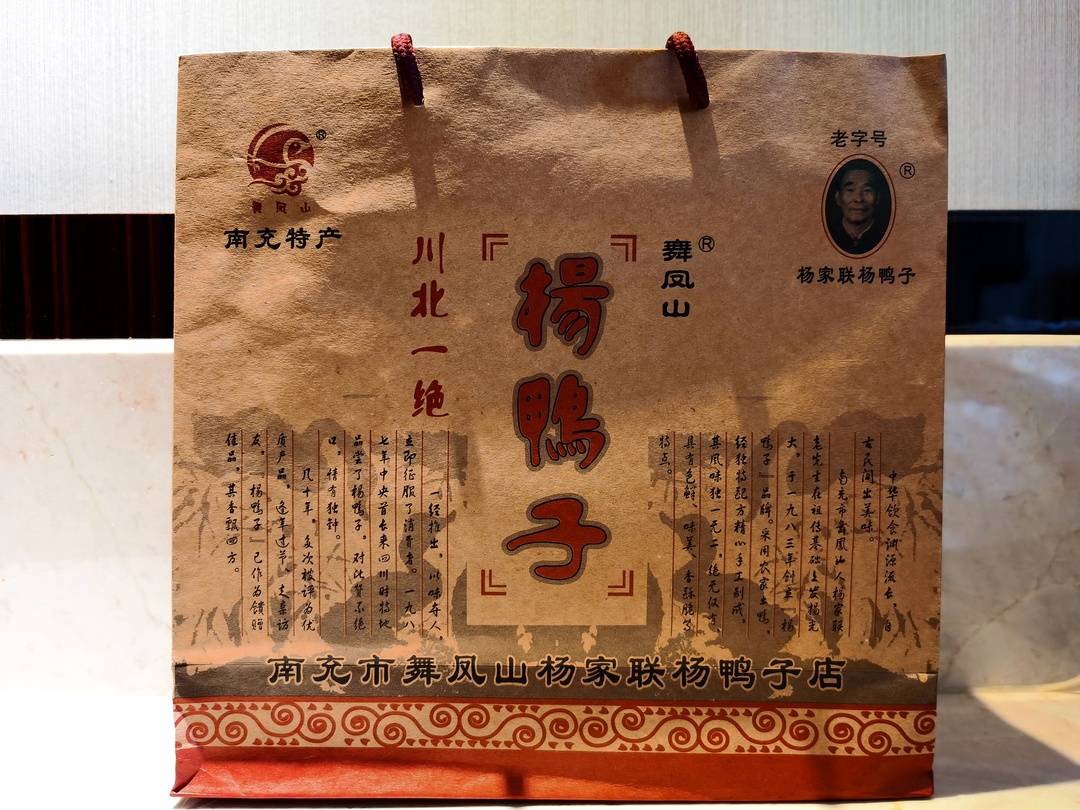 舞凤山
南充特产
老字号
杨家联杨鸭子
舞凤山
楊鴨子
川北一绝
中华饮食渊源流长，自
古民间出美味。
南充市舞凤山人杨家联
老先生在祖传基础上发扬光
大，于一九八三年创立“杨
鸭子”品牌。采用农家土鸭，
经独特配方精心手工制成。
其风味独一无二，绝无仅有，
具有色鲜、味美、香酥脆等
特点。
一经推出，以味夺人，
立即征服了消费者。一九八
七年中央首长来四川时特地
品尝了杨鸭子，对此赞不绝
口，情有独钟。
几十年，多次被评为优
质产品。逢年过节、走亲访
友，“杨鸭子”已作为馈赠
佳品，其香飘四方。
南充市舞凤山杨家联杨鸭子店